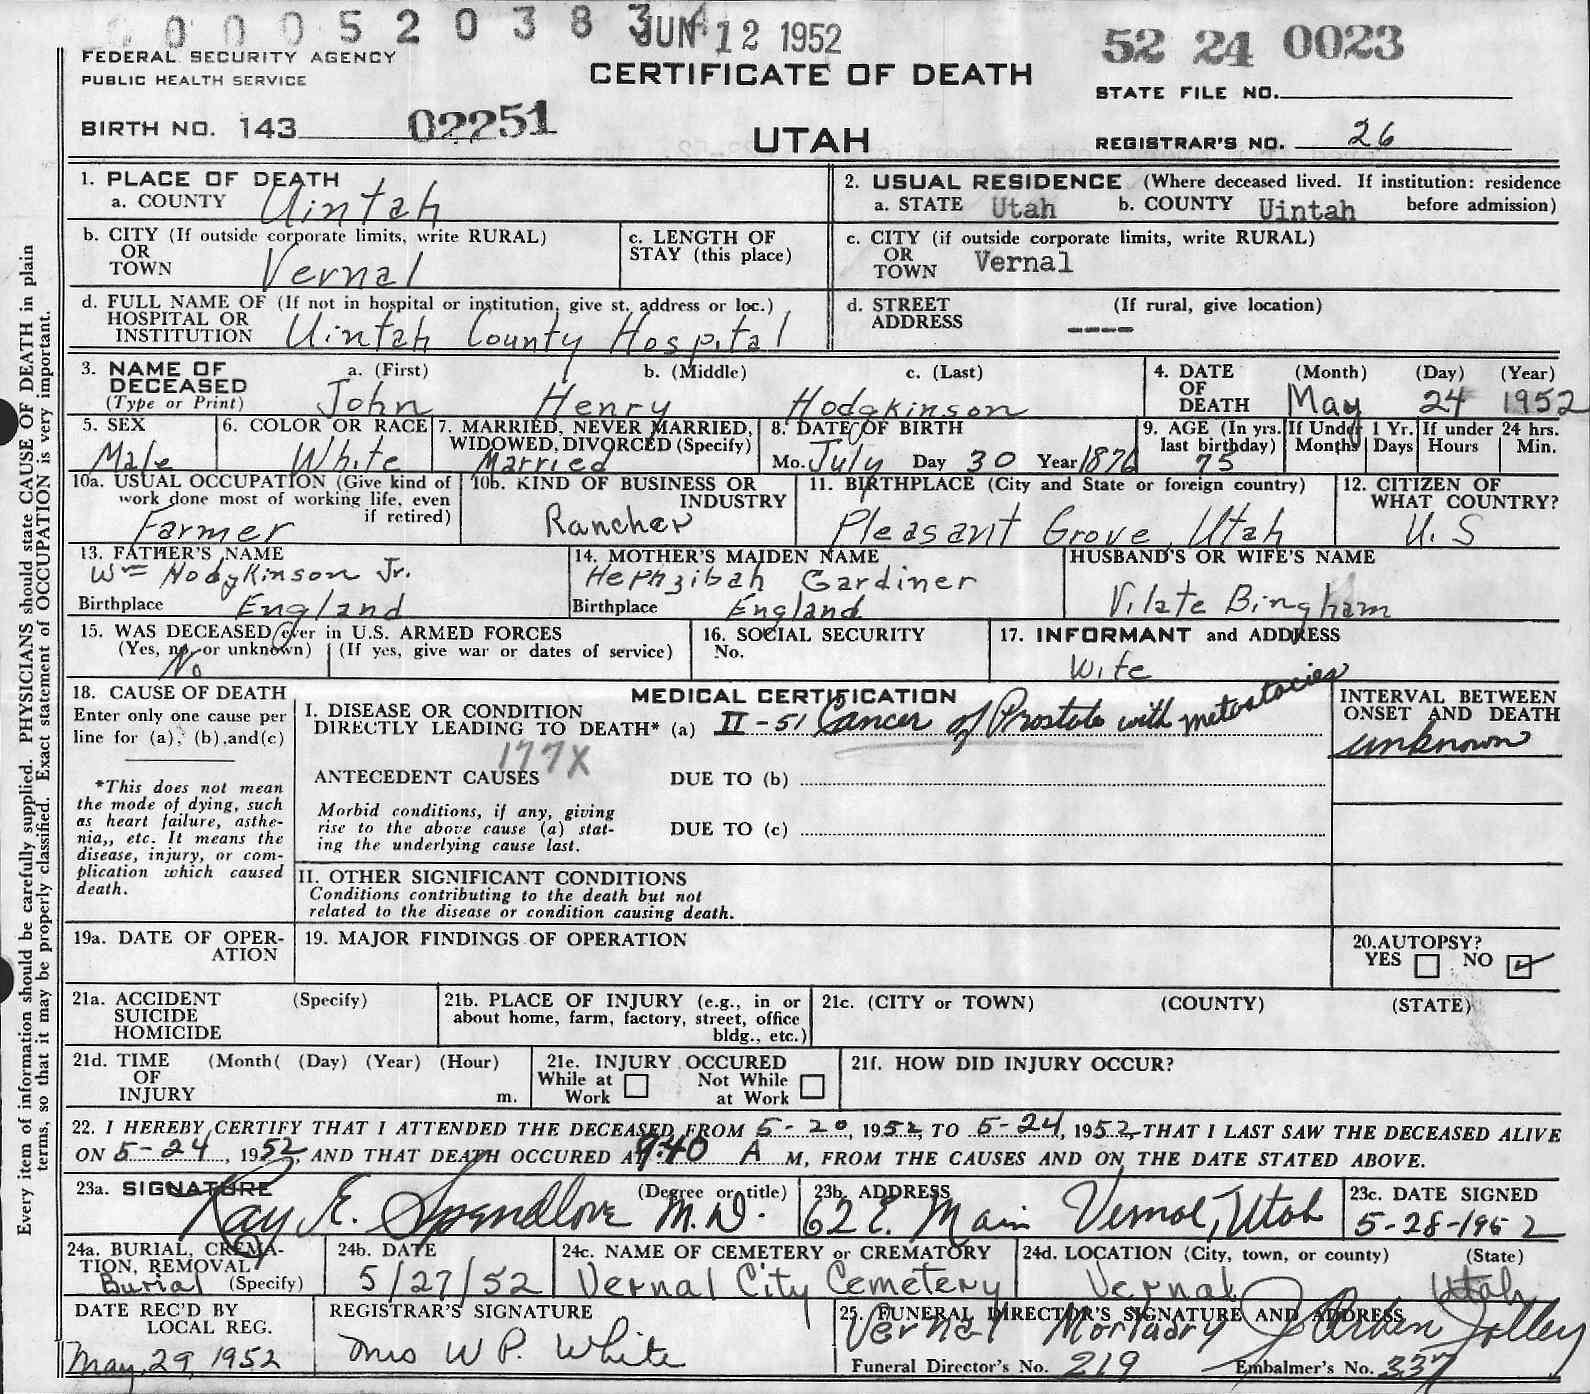 0 0 0 5 2 0 3 8 3
JUN 12 1952
52 24 0023
FEDERAL SECURITY AGENCY
PUBLIC HEALTH SERVICE
CERTIFICATE OF DEATH
STATE FILE NO.
BIRTH NO. 143 02251
UTAH
REGISTRAR'S NO. 26
1. PLACE OF DEATH
a. COUNTY Uintah
2. USUAL RESIDENCE (Where deceased lived. If institution: residence before admission)
a. STATE Utah b. COUNTY Uintah
b. CITY (If outside corporate limits, write RURAL)
OR
TOWN Vernal
c. LENGTH OF
STAY (this place)
c. CITY (if outside corporate limits, write RURAL)
OR
TOWN Vernal
d. FULL NAME OF (If not in hospital or institution, give st. address or loc.)
HOSPITAL OR
INSTITUTION Uintah County Hospital
d. STREET (If rural, give location)
ADDRESS ----
3. NAME OF a. (First) b. (Middle) c. (Last)
DECEASED
(Type or Print) John Henry Hodgkinson
4. DATE (Month) (Day) (Year)
OF
DEATH May 24 1952
5. SEX
Male
6. COLOR OR RACE
White
7. MARRIED, NEVER MARRIED,
WIDOWED, DIVORCED (Specify)
Married
8. DATE OF BIRTH
Mo. July Day 30 Year 1876
9. AGE (In yrs.
last birthday)
75
If Under 1 Yr.
Months Days
If under 24 hrs.
Hours Min.
10a. USUAL OCCUPATION (Give kind of
work done most of working life, even
if retired)
Farmer
10b. KIND OF BUSINESS OR
INDUSTRY
Rancher
11. BIRTHPLACE (City and State or foreign country)
Pleasant Grove, Utah
12. CITIZEN OF
WHAT COUNTRY?
U. S
13. FATHER'S NAME
Wm Hodgkinson Jr.
Birthplace England
14. MOTHER'S MAIDEN NAME
Hephzibah Gardiner
Birthplace England
HUSBAND'S OR WIFE'S NAME
Vilate Bingham
15. WAS DECEASED ever in U.S. ARMED FORCES
(Yes, no, or unknown) (If yes, give war or dates of service)
No
16. SOCIAL SECURITY
No.
17. INFORMANT and ADDRESS
Wife
18. CAUSE OF DEATH
Enter only one cause per
line for (a), (b),and(c)
*This does not mean
the mode of dying, such
as heart failure, asthe-
nia,, etc. It means the
disease, injury, or com-
plication which caused
death.
MEDICAL CERTIFICATION
I. DISEASE OR CONDITION
DIRECTLY LEADING TO DEATH* (a) II-51 Cancer of Prostate with metastacies
177X
ANTECEDENT CAUSES DUE TO (b)
Morbid conditions, if any, giving
rise to the above cause (a) stat-
ing the underlying cause last.
DUE TO (c)
INTERVAL BETWEEN
ONSET AND DEATH
unknown
II. OTHER SIGNIFICANT CONDITIONS
Conditions contributing to the death but not
related to the disease or condition causing death.
19a. DATE OF OPER-
ATION
19. MAJOR FINDINGS OF OPERATION
20.AUTOPSY?
YES ☐ NO ☑
21a. ACCIDENT (Specify)
SUICIDE
HOMICIDE
21b. PLACE OF INJURY (e.g., in or
about home, farm, factory, street, office
bldg., etc.)
21c. (CITY or TOWN) (COUNTY) (STATE)
21d. TIME (Month( (Day) (Year) (Hour)
OF
INJURY m.
21e. INJURY OCCURED
While at Work ☐ Not While at Work ☐
21f. HOW DID INJURY OCCUR?
22. I HEREBY CERTIFY THAT I ATTENDED THE DECEASED FROM 5-20, 1952, TO 5-24, 1952, THAT I LAST SAW THE DECEASED ALIVE
ON 5-24, 1952, AND THAT DEATH OCCURED AT 9:40 A M, FROM THE CAUSES AND ON THE DATE STATED ABOVE.
23a. SIGNATURE (Degree or title)
Ray E. Spendlove M.D.
23b. ADDRESS
62 E. Main Vernal, Utah
23c. DATE SIGNED
5-28-1952
24a. BURIAL, CREMA-
TION, REMOVAL
Burial (Specify)
24b. DATE
5/27/52
24c. NAME OF CEMETERY or CREMATORY
Vernal City Cemetery
24d. LOCATION (City, town, or county) (State)
Vernal Utah
DATE REC'D BY
LOCAL REG.
May 29, 1952
REGISTRAR'S SIGNATURE
Mrs W P. White
25. FUNERAL DIRECTOR'S SIGNATURE AND ADDRESS
Vernal Mortuary J Arben Jolley
Funeral Director's No. 219 Embalmer's No. 337
Every item of information should be carefully supplied. PHYSICIANS should state CAUSE OF DEATH in plain
terms, so that it may be properly classified. Exact statement of OCCUPATION is very important.